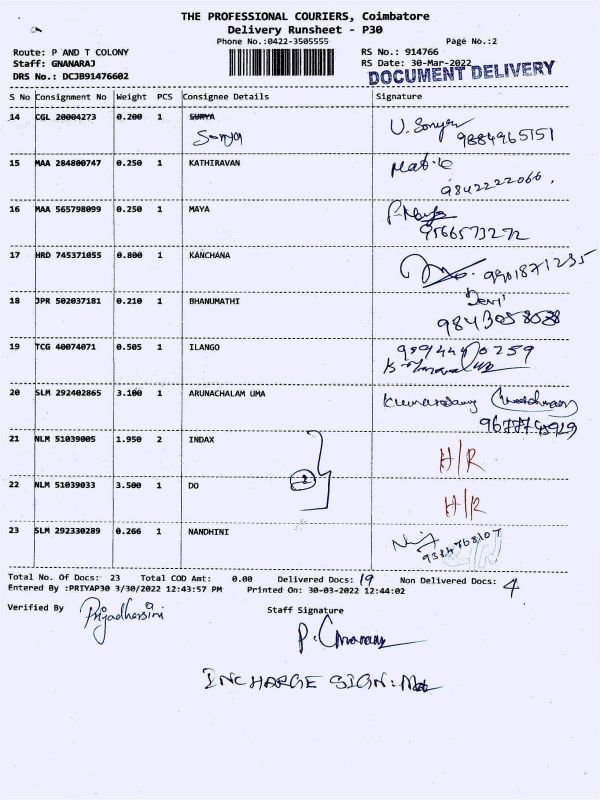 THE PROFESSIONAL COURIERS, Coimbatore
Delivery Runsheet - P30
Phone No.:0422-3505555 Page No.:2
Route: P AND T COLONY RS No.: 914766
Staff: GNANARAJ RS Date: 30-Mar-2022
DRS No.: DCJB91476602 DOCUMENT DELIVERY
S No Consignment No Weight PCS Consignee Details Signature
14 CGL 20004273 0.200 1 SURYA
Sonya U. Sonya
9884965151
15 MAA 284800747 0.250 1 KATHIRAVAN
9842222066.
16 MAA 565798099 0.250 1 MAYA
9566573272
17 HRD 745371055 0.800 1 KANCHANA
9901871235
18 JPR 502037181 0.210 1 BHANUMATHI Devi
9843058038
19 TCG 40074071 0.505 1 ILANGO 9994440259
20 SLM 292402865 3.100 1 ARUNACHALAM UMA
21 NLM 51039005 1.950 2 INDAX H/R
2
22 NLM 51039033 3.500 1 DO H/R
23 SLM 292330289 0.266 1 NANDHINI
9384768107
Total No. Of Docs: 23 Total COD Amt: 0.00 Delivered Docs: 19 Non Delivered Docs: 4
Entered By :PRIYAP30 3/30/2022 12:43:57 PM Printed On: 30-03-2022 12:44:02
Verified By Priyadharsini Staff Signature
INCHARGE SIGN: